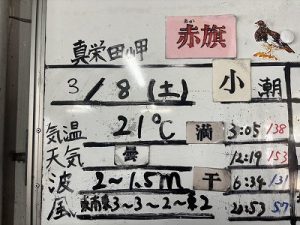 真栄田岬
赤旗
3/8(土)
小
潮
気温 21℃ 満 3:05 138
天気 曇 12:19 153
波 2~1.5m 干 6:34 131
風 3~3~2~東2 20:53 57